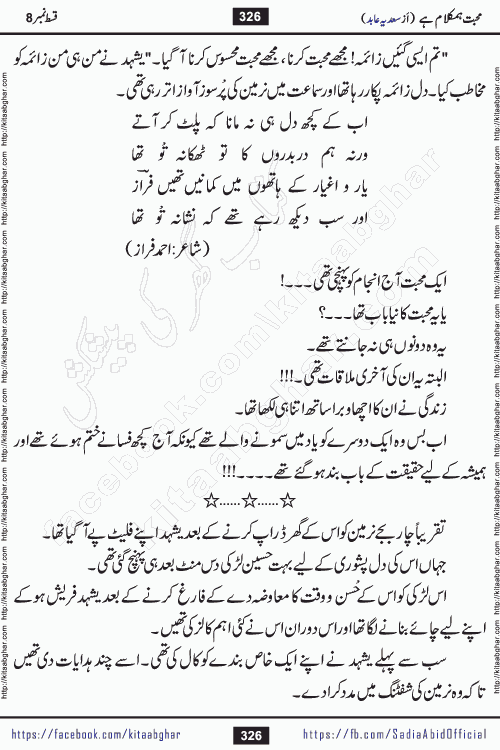 محبت ہمکلام ہے (از سعدیہ عابد) 326 قسط نمبر 8
"تم ایسی گئیں زائمہ! مجھے محبت کرنا، مجھے محبت محسوس کرنا آ گیا۔" یشہد نے من ہی من زائمہ کو
مخاطب کیا۔ دل زائمہ پکار رہا تھا اور سماعت میں نرمین کی پُرسوز آواز اتر رہی تھی۔
اب کے کچھ دل ہی نہ مانا کہ پلٹ کر آتے
ورنہ ہم دربدروں کا تو ٹھکانہ تُو تھا
یار و اغیار کے ہاتھوں میں کمانیں تھیں فرازؔ
اور سب دیکھ رہے تھے کہ نشانہ تُو تھا
(شاعر: احمد فراز)
ایک محبت آج انجام کو پہنچی تھی۔۔۔!
یا یہ محبت کا نیا باب تھا۔۔۔؟
یہ وہ دونوں ہی نہ جانتے تھے۔
البتہ یہ ان کی آخری ملاقات تھی۔!!!
زندگی نے ان کا اچھا و برا ساتھ اتنا ہی لکھا تھا۔
اب بس وہ ایک دوسرے کو یاد میں سمونے والے تھے کیونکہ آج کچھ فسانے ختم ہوئے تھے اور
ہمیشہ کے لیے حقیقت کے باب بند ہو گئے تھے۔۔۔۔!!!
☆......☆......☆
تقریباً چار بجے نرمین کو اس کے گھر ڈراپ کرنے کے بعد یشہد اپنے فلیٹ پے آ گیا تھا۔
جہاں اس کی دل پشوری کے لیے بہت حسین لڑکی دس منٹ بعد ہی پہنچ گئی تھی۔
اس لڑکی کو اس کے حُسن و وقت کا معاوضہ دے کے فارغ کرنے کے بعد یشہد فریش ہو کے
اپنے لیے چائے بنانے لگا تھا اور اس دوران اس نے کئی اہم کالز کی تھیں۔
سب سے پہلے یشہد نے اپنے ایک خاص بندے کو کال کی تھی۔ اسے چند ہدایات دی تھیں
تا کہ وہ نرمین کی شفٹنگ میں مدد کرا دے۔
https://facebook.com/kitaabghar 326 https://fb.com/SadiaAbidOfficial
http://kitaabghar.com http://kitaabghar.com http://kitaabghar.com http://kitaabghar.com http://kitaabghar.com http://kitaabghar.com http://kitaabghar.com http://kitaabghar.com
facebook.com/kitaabghar
کتاب گھر کی پیشکش